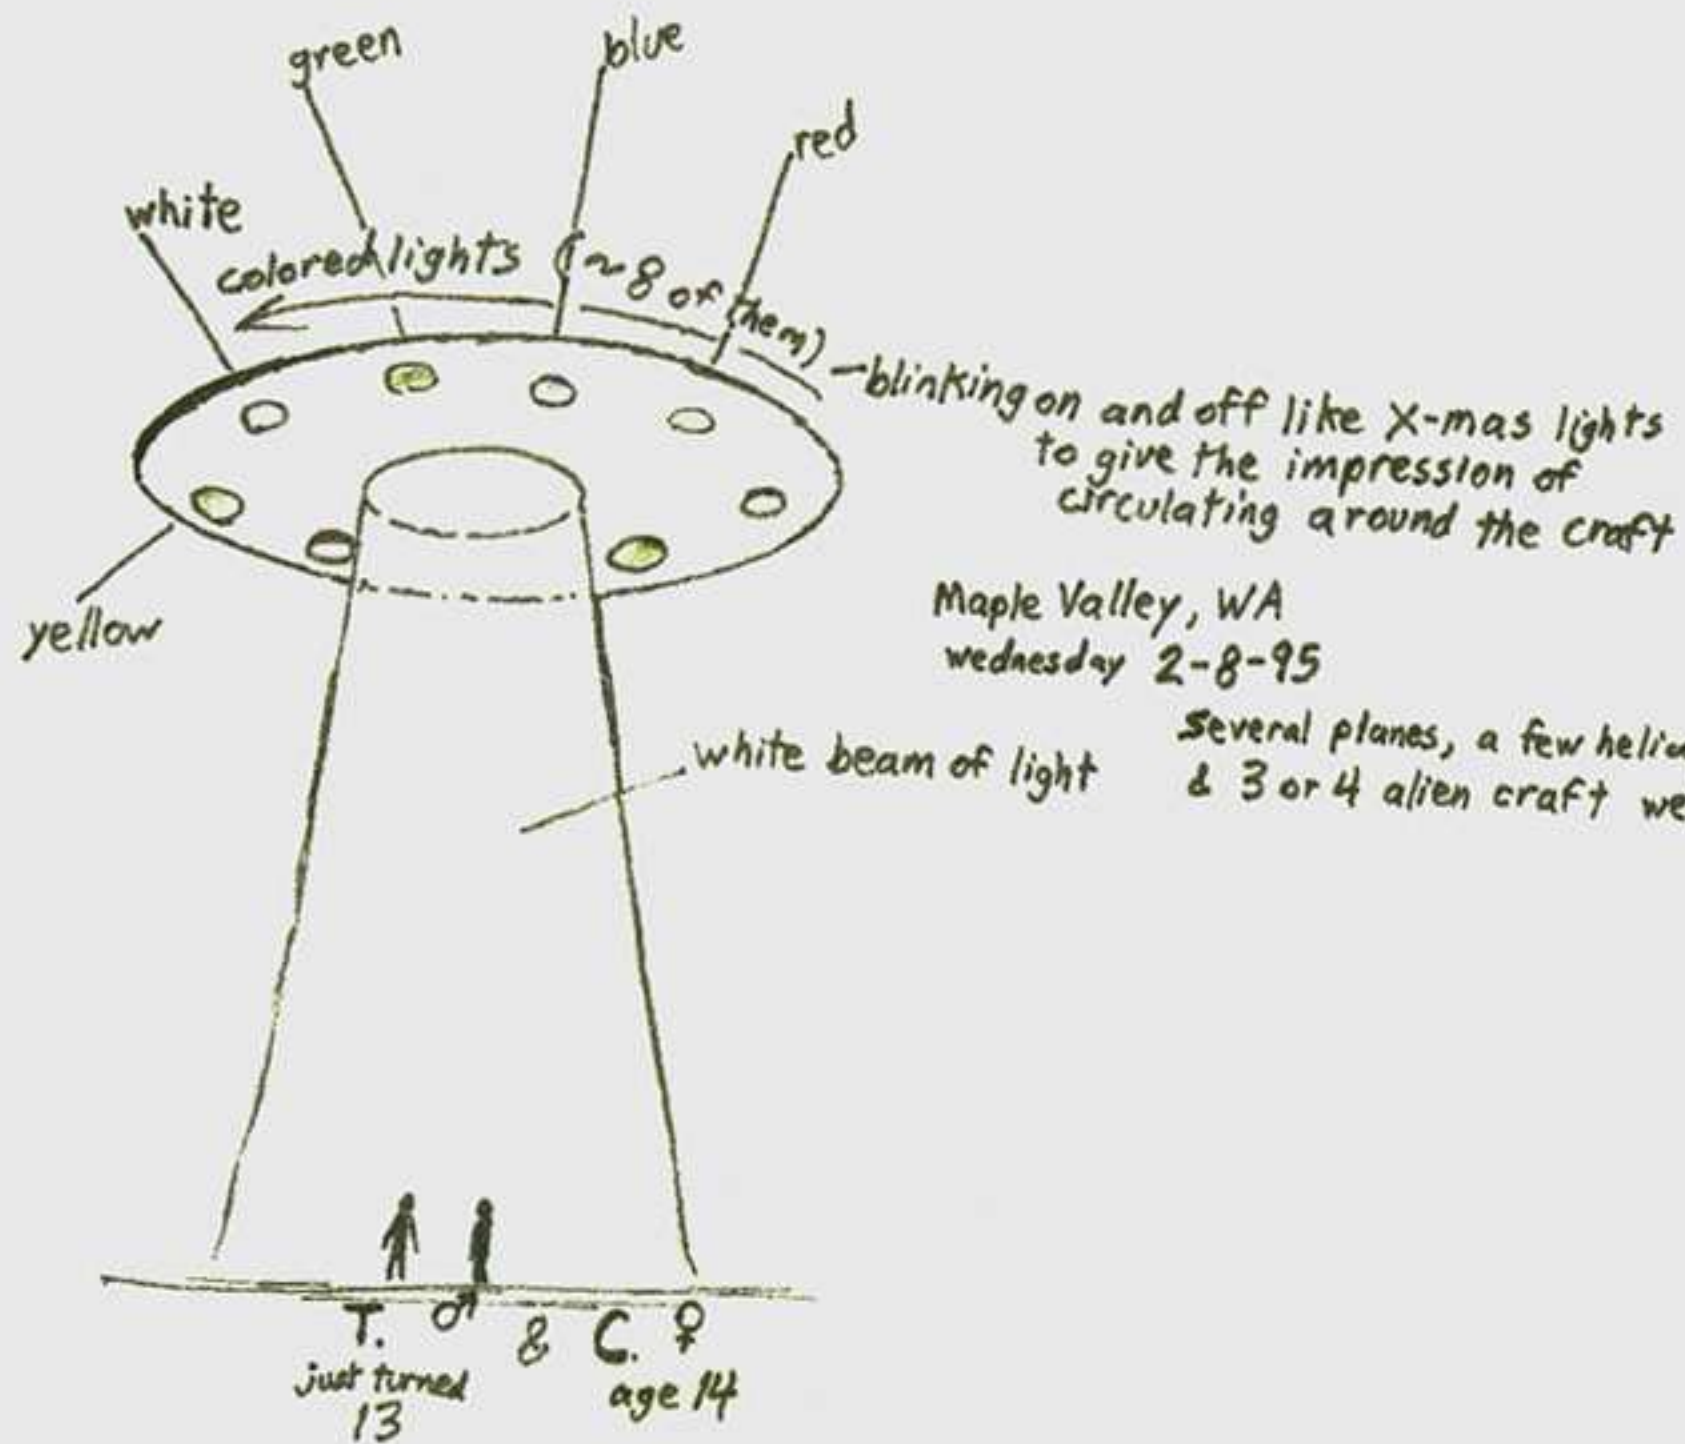 green
blue
red
white
colored lights (~8 of them)
-blinking on and off like X-mas lights
to give the impression of
circulating around the craft
yellow
Maple Valley, WA
wednesday 2-8-95
white beam of light
Several planes, a few
& 3 or 4 alien craft
T. ♂ & C. ♀
just turned
13
age 14